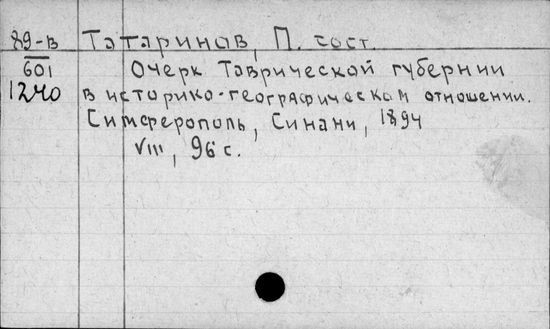 89-в Татаринов, П. сост.
601 Очерк Таврической губернии
1240 в историко-географическом отношении.
Симферополь, Синани, 1894
VIII, 96 с.